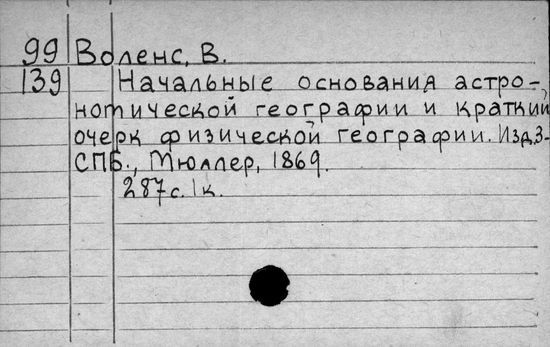 99 Воленс, В.
139 Начальные основания астро-
номической географии и краткий
очерк физической географии. Изд. 3-
СПБ., Мюллер, 1869.
287 с. 1 к.